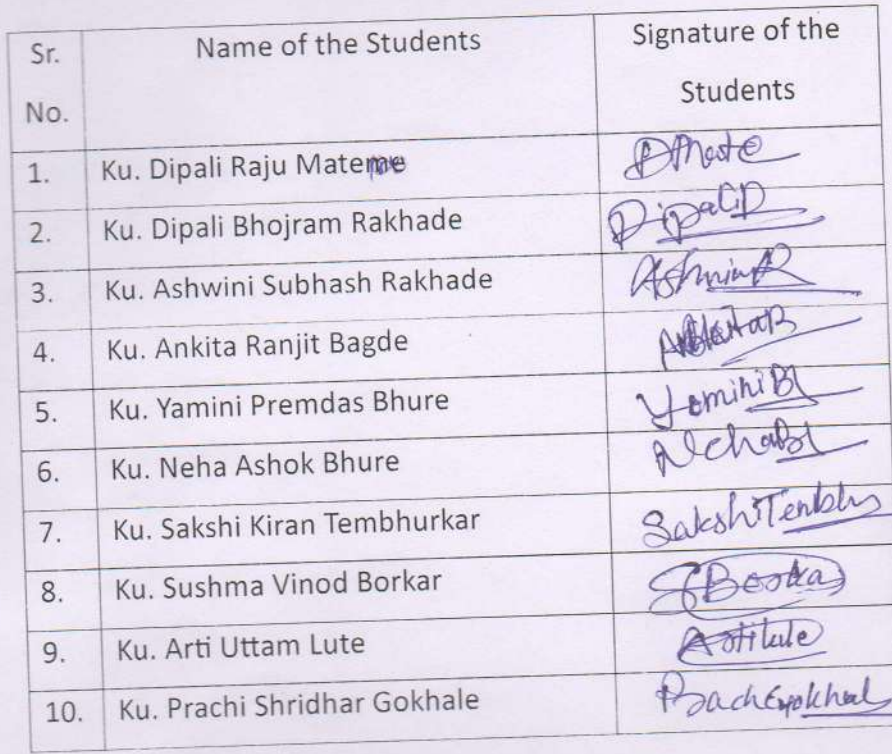 Sr. No.
Name of the Students
Signature of the Students
1. Ku. Dipali Raju Mateme
2. Ku. Dipali Bhojram Rakhade DipaliD
3. Ku. Ashwini Subhash Rakhade
4. Ku. Ankita Ranjit Bagde
5. Ku. Yamini Premdas Bhure
6. Ku. Neha Ashok Bhure
7. Ku. Sakshi Kiran Tembhurkar Sakshi
8. Ku. Sushma Vinod Borkar
9. Ku. Arti Uttam Lute
10. Ku. Prachi Shridhar Gokhale